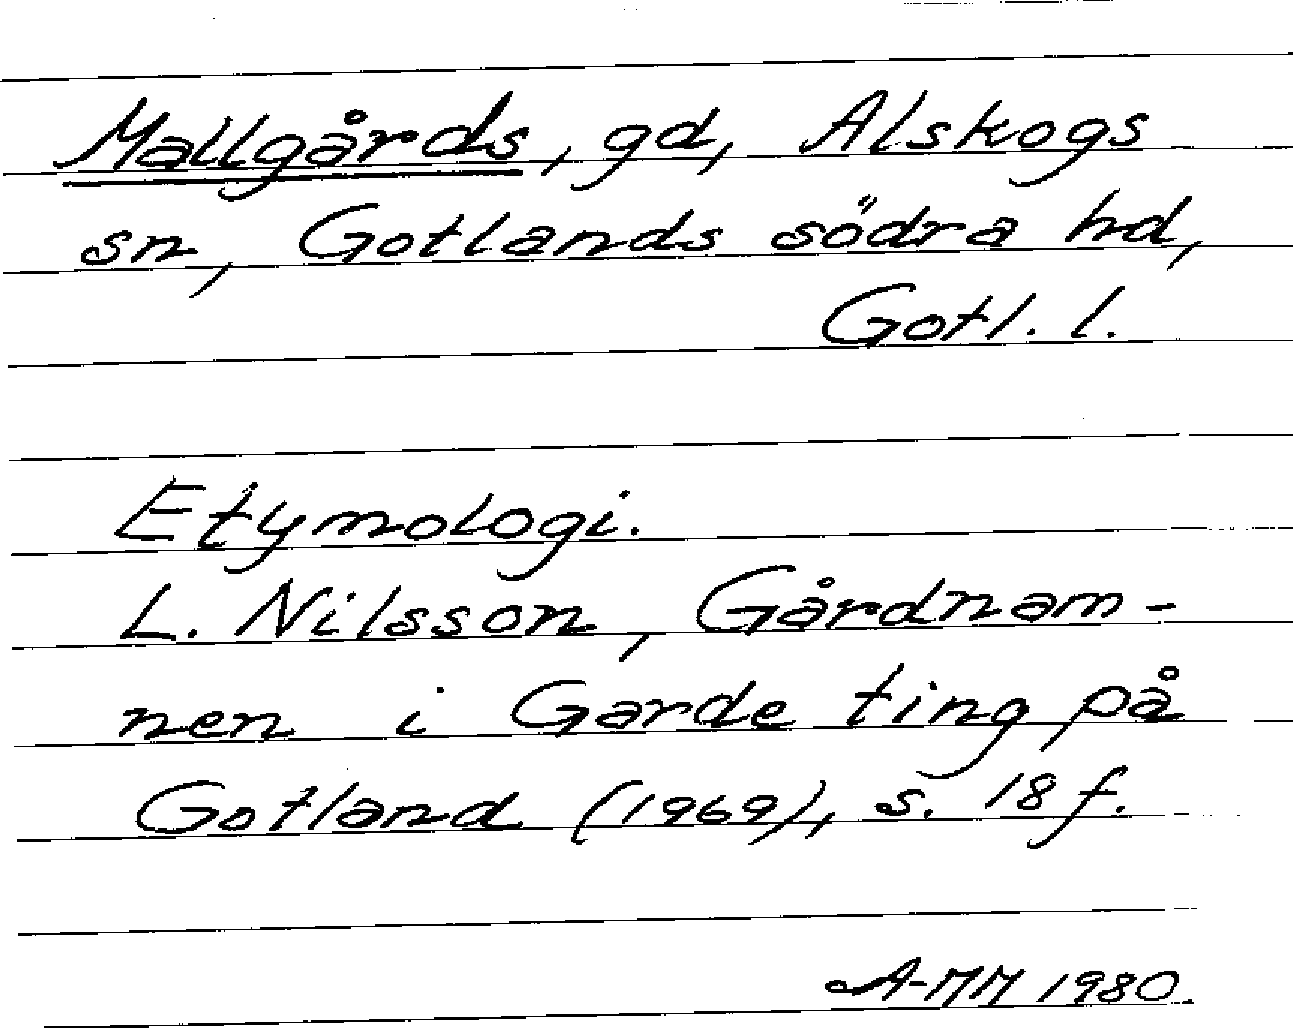 Mallgårds, gd, Alskogs
sn, Gotlands södra hd,
Gotl. l.
Etymologi.
L. Nilsson, Gårdnam-
nen i Garde ting på
Gotland (1969), s. 18 f.
A-MM 1980.